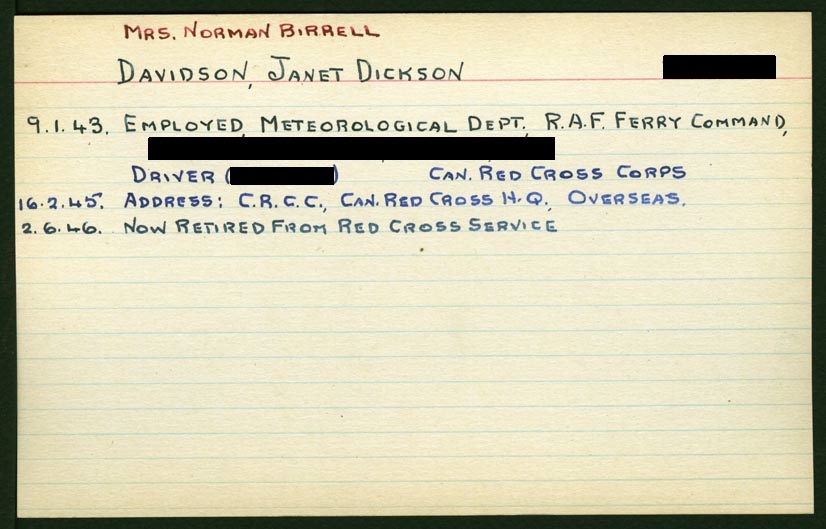 MRS. NORMAN BIRRELL
DAVIDSON, JANET DICKSON
9.1.43. EMPLOYED, METEOROLOGICAL DEPT., R.A.F. FERRY COMMAND,
DRIVER ( ) CAN. RED CROSS CORPS
16.2.45. ADDRESS: C.R.C.C., CAN. RED CROSS H.Q., OVERSEAS.
2.6.46. NOW RETIRED FROM RED CROSS SERVICE